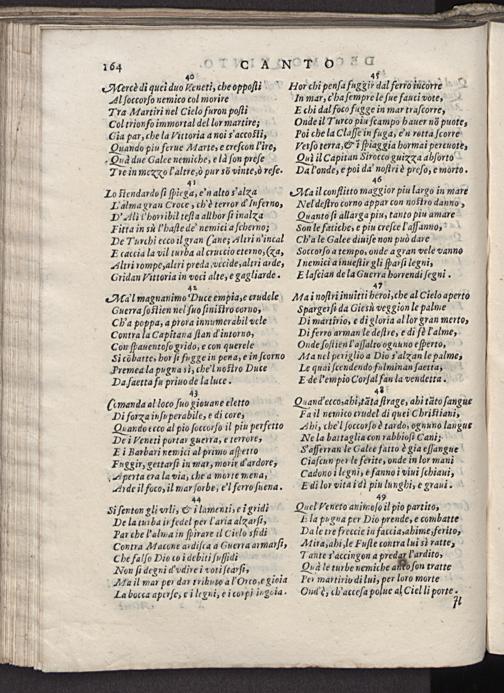 164 CANTO
40
Mercè di quei duo Veneti, che opposti
Al soccorso nemico col morire
Tra Martiri nel Cielo furon posti
Col trionfo immortal del lor martire;
Gia par, che la Vittoria a noi s'accosti,
Quando piu ferue Marte, e crescon l'ire,
Quà due Galee nemiche, e là son prese
Tre in mezzo l'altre, ò pur sō vinte, ò rese.
41
Lo stendardo si spiega, e'n alto s'alza
L'alma gran Croce, ch'è terror d'Inferno,
D'Alì l'horribil testa allhor si inalza
Fitta in sù l'haste de' nemici a scherno;
De Turchi ecco il gran Cane; Altri n'incal
E caccia la vil turba al cruccio eterno, (za,
Altri rompe, altri preda, vccide, altri arde,
Gridan Vittoria in voci alte, e gagliarde.
42
Ma'l magnanimo Duce empia, e crudele
Guerra sostien nel suo sinistro corno,
Ch'a poppa, a prora innumerabil vele
Contra la Capitana stan d'intorno,
Con spauentoso grido, e con querele
Si cōbatte, hor si fugge in pena, e in scorno
Premea la pugna sì, che'l nostro Duce
Da saetta fu priuo de la luce.
43
Comanda al loco suo giouane eletto
Di forza insuperabile, e di core,
Quando ecco al pio soccorso il piu perfetto
De i Veneti portar guerra, e terrore,
E i Barbari nemici al primo aspetto
Fuggir, gettarsi in mar, morir d'ardore,
Aperta era la via, che a morte mena,
Arde il foco, il mar sorbe, e'l ferro suena.
44
Si senton gli vrli, & i lamenti, e i gridi
De la turba infedel per l'aria alzarsi,
Par che l'alma in spirare il Cielo sfidi
Contra Macone ardisca a Guerra armarsi,
Che falso Dio co i debiti sussidi
Non si degni d'vdire i voti scarsi,
Ma il mar per dar tributo a l'Orco, e gioia
La bocca aperse, e i legni, e i corpi ingoia.
45
Hor chi pensa fuggir dal ferro incorre
In mar, c'ha sempre le sue fauci vote,
E chi dal foco fugge in mar trascorre,
Onde il Turco piu scampo hauer nō puote,
Poi che la Classe in fuga, e'n rotta scorre
Verso terra, & i spiaggia hormai percuote,
Quì il Capitan Sirocco guizza absorto
Da l'onde, e poi da' nostri è preso, e morto.
46
Ma il conflitto maggior piu largo in mare
Nel destro corno appar con nostro danno,
Quanto si allarga piu, tanto piu amare
Son le fatiche, e piu cresce l'affanno,
Ch'a le Galee diuise non può dare
Soccorso a tempo, onde a gran vele vanno
I nemici a inuestir gli sparsi legni,
E lascian de la Guerra horrendi segni.
47
Ma i nostri inuitti heroi, che al Cielo aperto
Spargersi da Giesù veggion le palme
Di martirio, e di gloria al lor gran merto,
Di ferro arman le destre, e di fè l'alme,
Onde sostien l'assalto ognuno esperto,
Ma nel periglio a Dio s'alzan le palme,
Le quai scendendo fulminan saetta,
E de l'empio Corsal fan la vendetta.
48
Quand'ecco, ahi, tāta strage, ahi tāto sangue
Fa il nemico crudel di quei Christiani,
Ahi, che'l soccorso è tardo, ognuno langue
Ne la battaglia con rabbiosi Cani;
S'afferran le Galee fatto è gia essangue
Ciascun per le ferite, onde in lor mani
Cadono i legni, e fanno i viui schiaui,
E di lor vita i dì piu lunghi, e graui.
49
Quel Veneto animoso il pio partito,
E la pugna per Dio prende, e combatte
Da le tre freccie in faccia, ahime, ferito,
Mira, ahi, le Fuste contra lui sì ratte,
Tante s'accingon a predar l'ardito,
Quà le turbe nemiche anco son tratte
Per martirio di lui, per loro morte
Ond'è, ch'accesa polue al Ciel li porte.
Il